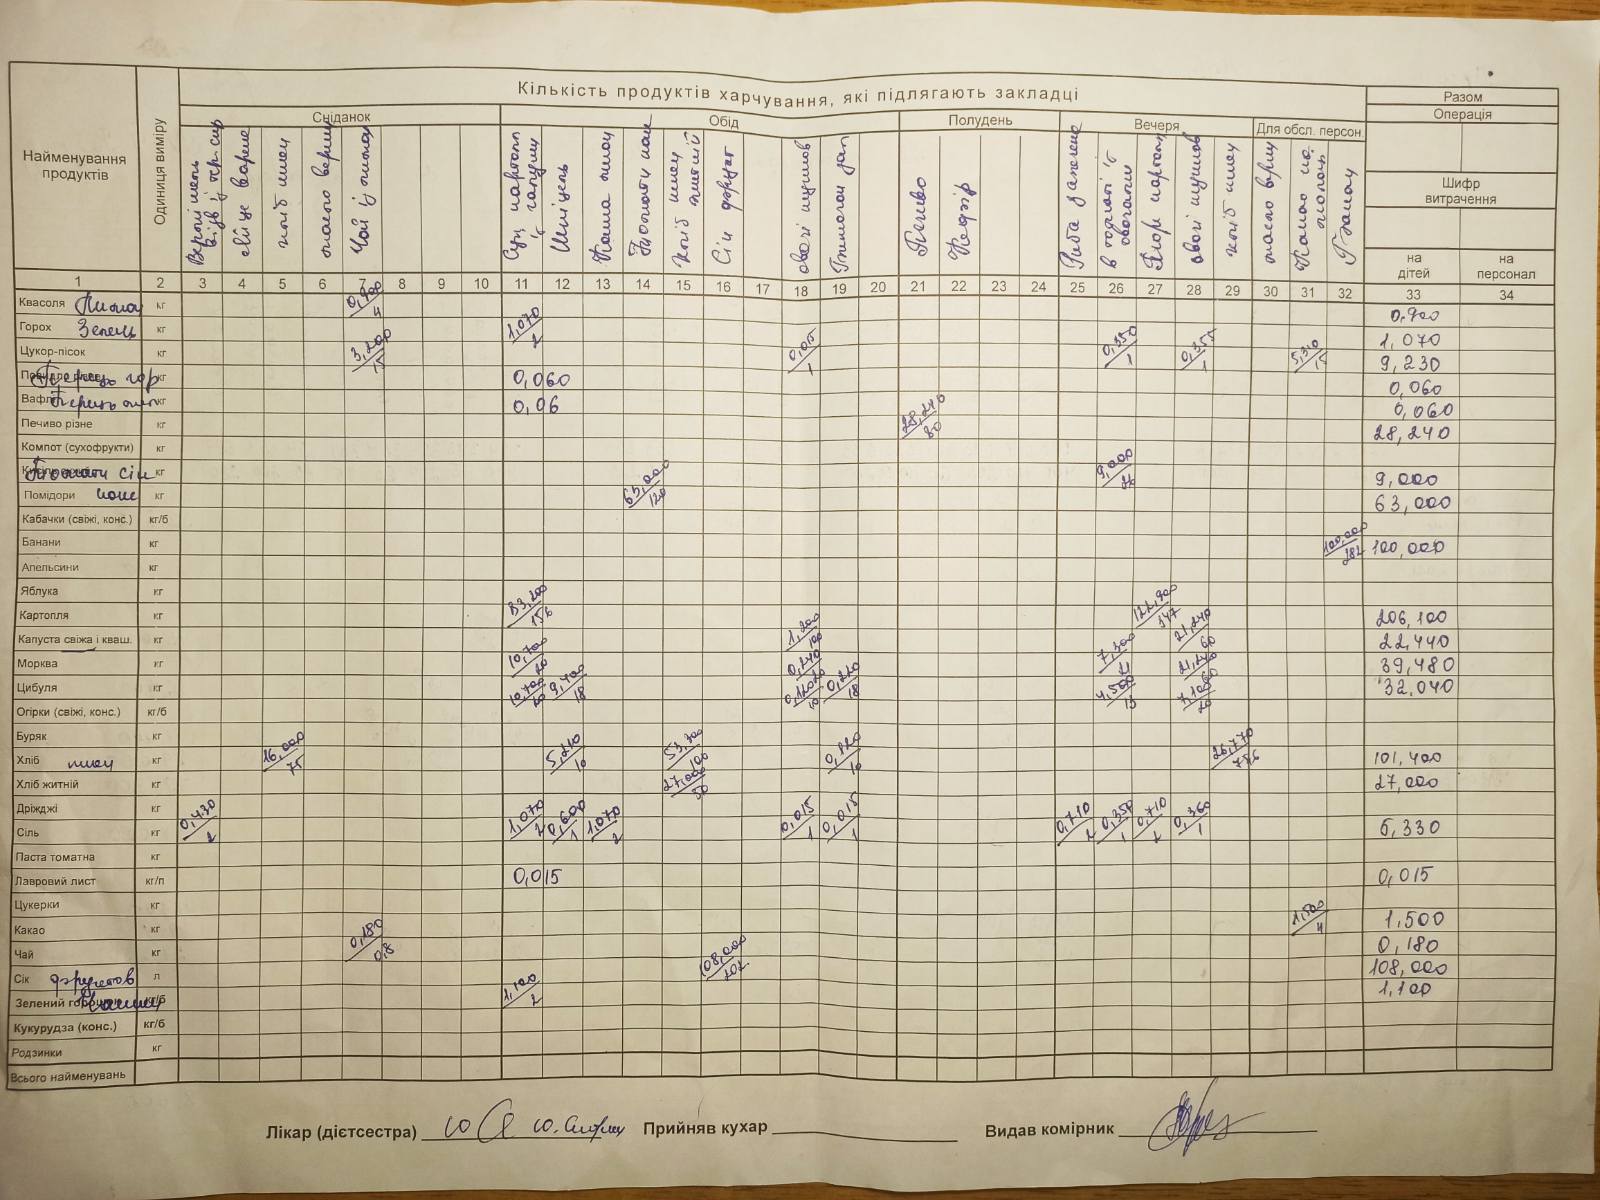 Кількість продуктів харчування, які підлягають закладці
Разом
Найменування продуктів
Одиниця виміру
Сніданок
Обід
Полудень
Вечеря
Для обсл. персон.
Операція
Шифр витрачення
на дітей
на персонал
яйце варене
хліб пшен
масло верш
Чай із лимон
Суп картопл
Шніцель
Каша пшон
Томати кон
хліб пшен житній
Сік фрукт
овочі тушков
Печиво
Кефір
Риба запечена
в томаті з овочами
Пюре картопл
овочі тушков
хліб пшен
масло верш
Какао на молоці
Банан
1 2 3 4 5 6 7 8 9 10 11 12 13 14 15 16 17 18 19 20 21 22 23 24 25 26 27 28 29 30 31 32 33 34
Квасоля Лимон кг 0,900/4 0,900
Горох Зелень кг 1,070/2 1,070
Цукор-пісок кг 3,200/15 0,015/1 0,350/1 0,355/1 5,310/15 9,230
Перець гор кг 0,060 0,060
Вафлі Перець кг 0,06 0,060
Печиво різне кг 28,240/80 28,240
Компот (сухофрукти) кг
Томати сік кг 9,000/26 9,000
Помідори конс кг 63,000/120 63,000
Кабачки (свіжі, конс.) кг/б
Банани кг 100,000/282 100,000
Апельсини кг
Яблука кг
Картопля кг 83,200/156 122,900/347 206,100
Капуста свіжа і кваш. кг 1,200/100 21,240/60 22,440
Морква кг 10,700/20 0,240/20 7,300/21 21,240/60 39,480
Цибуля кг 10,700/20 9,400/18 0,120/10 0,220/18 4,500/13 7,100/20 32,040
Огірки (свіжі, конс.) кг/б
Буряк кг
Хліб пшен кг 16,000/75 5,210/10 53,300/100 0,120/10 26,770/75,6 101,400
Хліб житній кг 27,000/50 27,000
Дріжджі кг
Сіль кг 0,430/2 1,070/2 0,600/1 1,070/2 0,015/1 0,015/1 0,710/2 0,350/1 0,710/2 0,360/1 5,330
Паста томатна кг
Лавровий лист кг/п 0,015 0,015
Цукерки кг
Какао кг 1,500/4 1,500
Чай кг 0,180/0,8 0,180
Сік фруктов л 108,000/202 108,000
Зелений горошок кг/б 1,100/2 1,100
Кукурудза (конс.) кг/б
Родзинки кг
Всього найменувань
Лікар (дієтсестра) Прийняв кухар Видав комірник